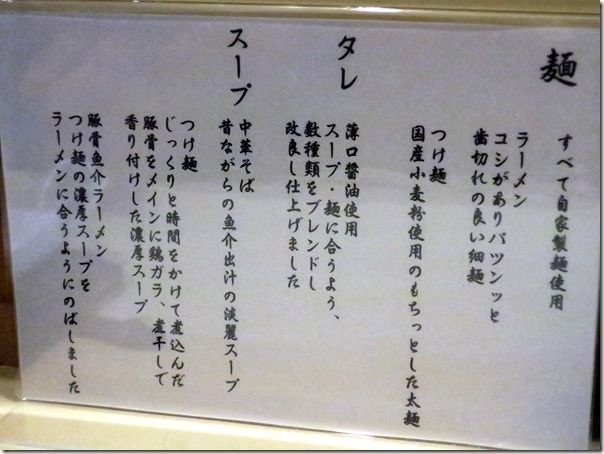 麺
すべて自家製麺使用
ラーメン
コシがありパツンッと
歯切れの良い細麺
つけ麺
国産小麦粉使用のもちっとした太麺
タレ
薄口醤油使用
スープ・麺に合うよう、
数種類をブレンドし
改良し仕上げました
スープ
中華そば
昔ながらの魚介出汁の淡麗スープ
つけ麺
じっくりと時間をかけて煮込んだ
豚骨をメインに鶏ガラ、煮干しで
香り付けした濃厚スープ
豚骨魚介ラーメン
つけ麺の濃厚スープを
ラーメンに合うようにのばしました